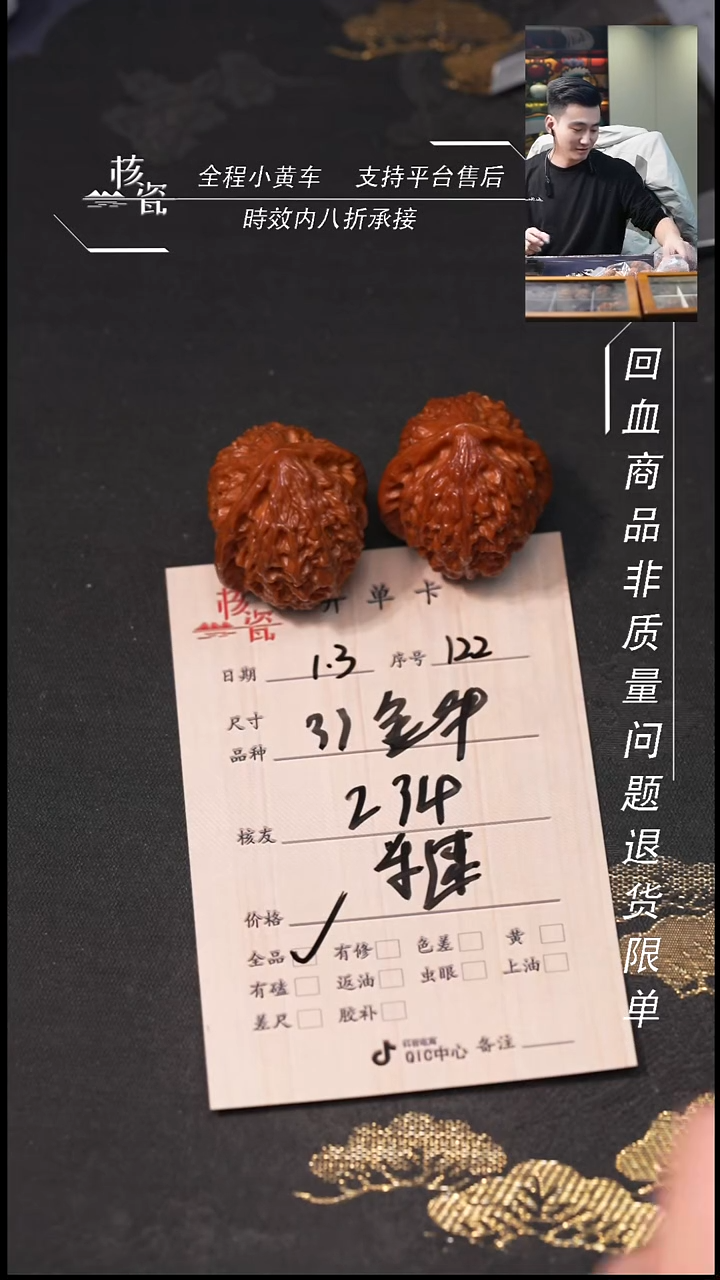 核瓷
全程小黄车 支持平台售后
時效内八折承接
回血商品非质量问题退货限单
核瓷
开单卡
日期 1.3 序号 122
尺寸
品种 31金牛
核友 234
价格
全品 ✓ 有修 色差 黄
有磕 返油 虫眼 上油
差尺 胶补
QIC中心 备注